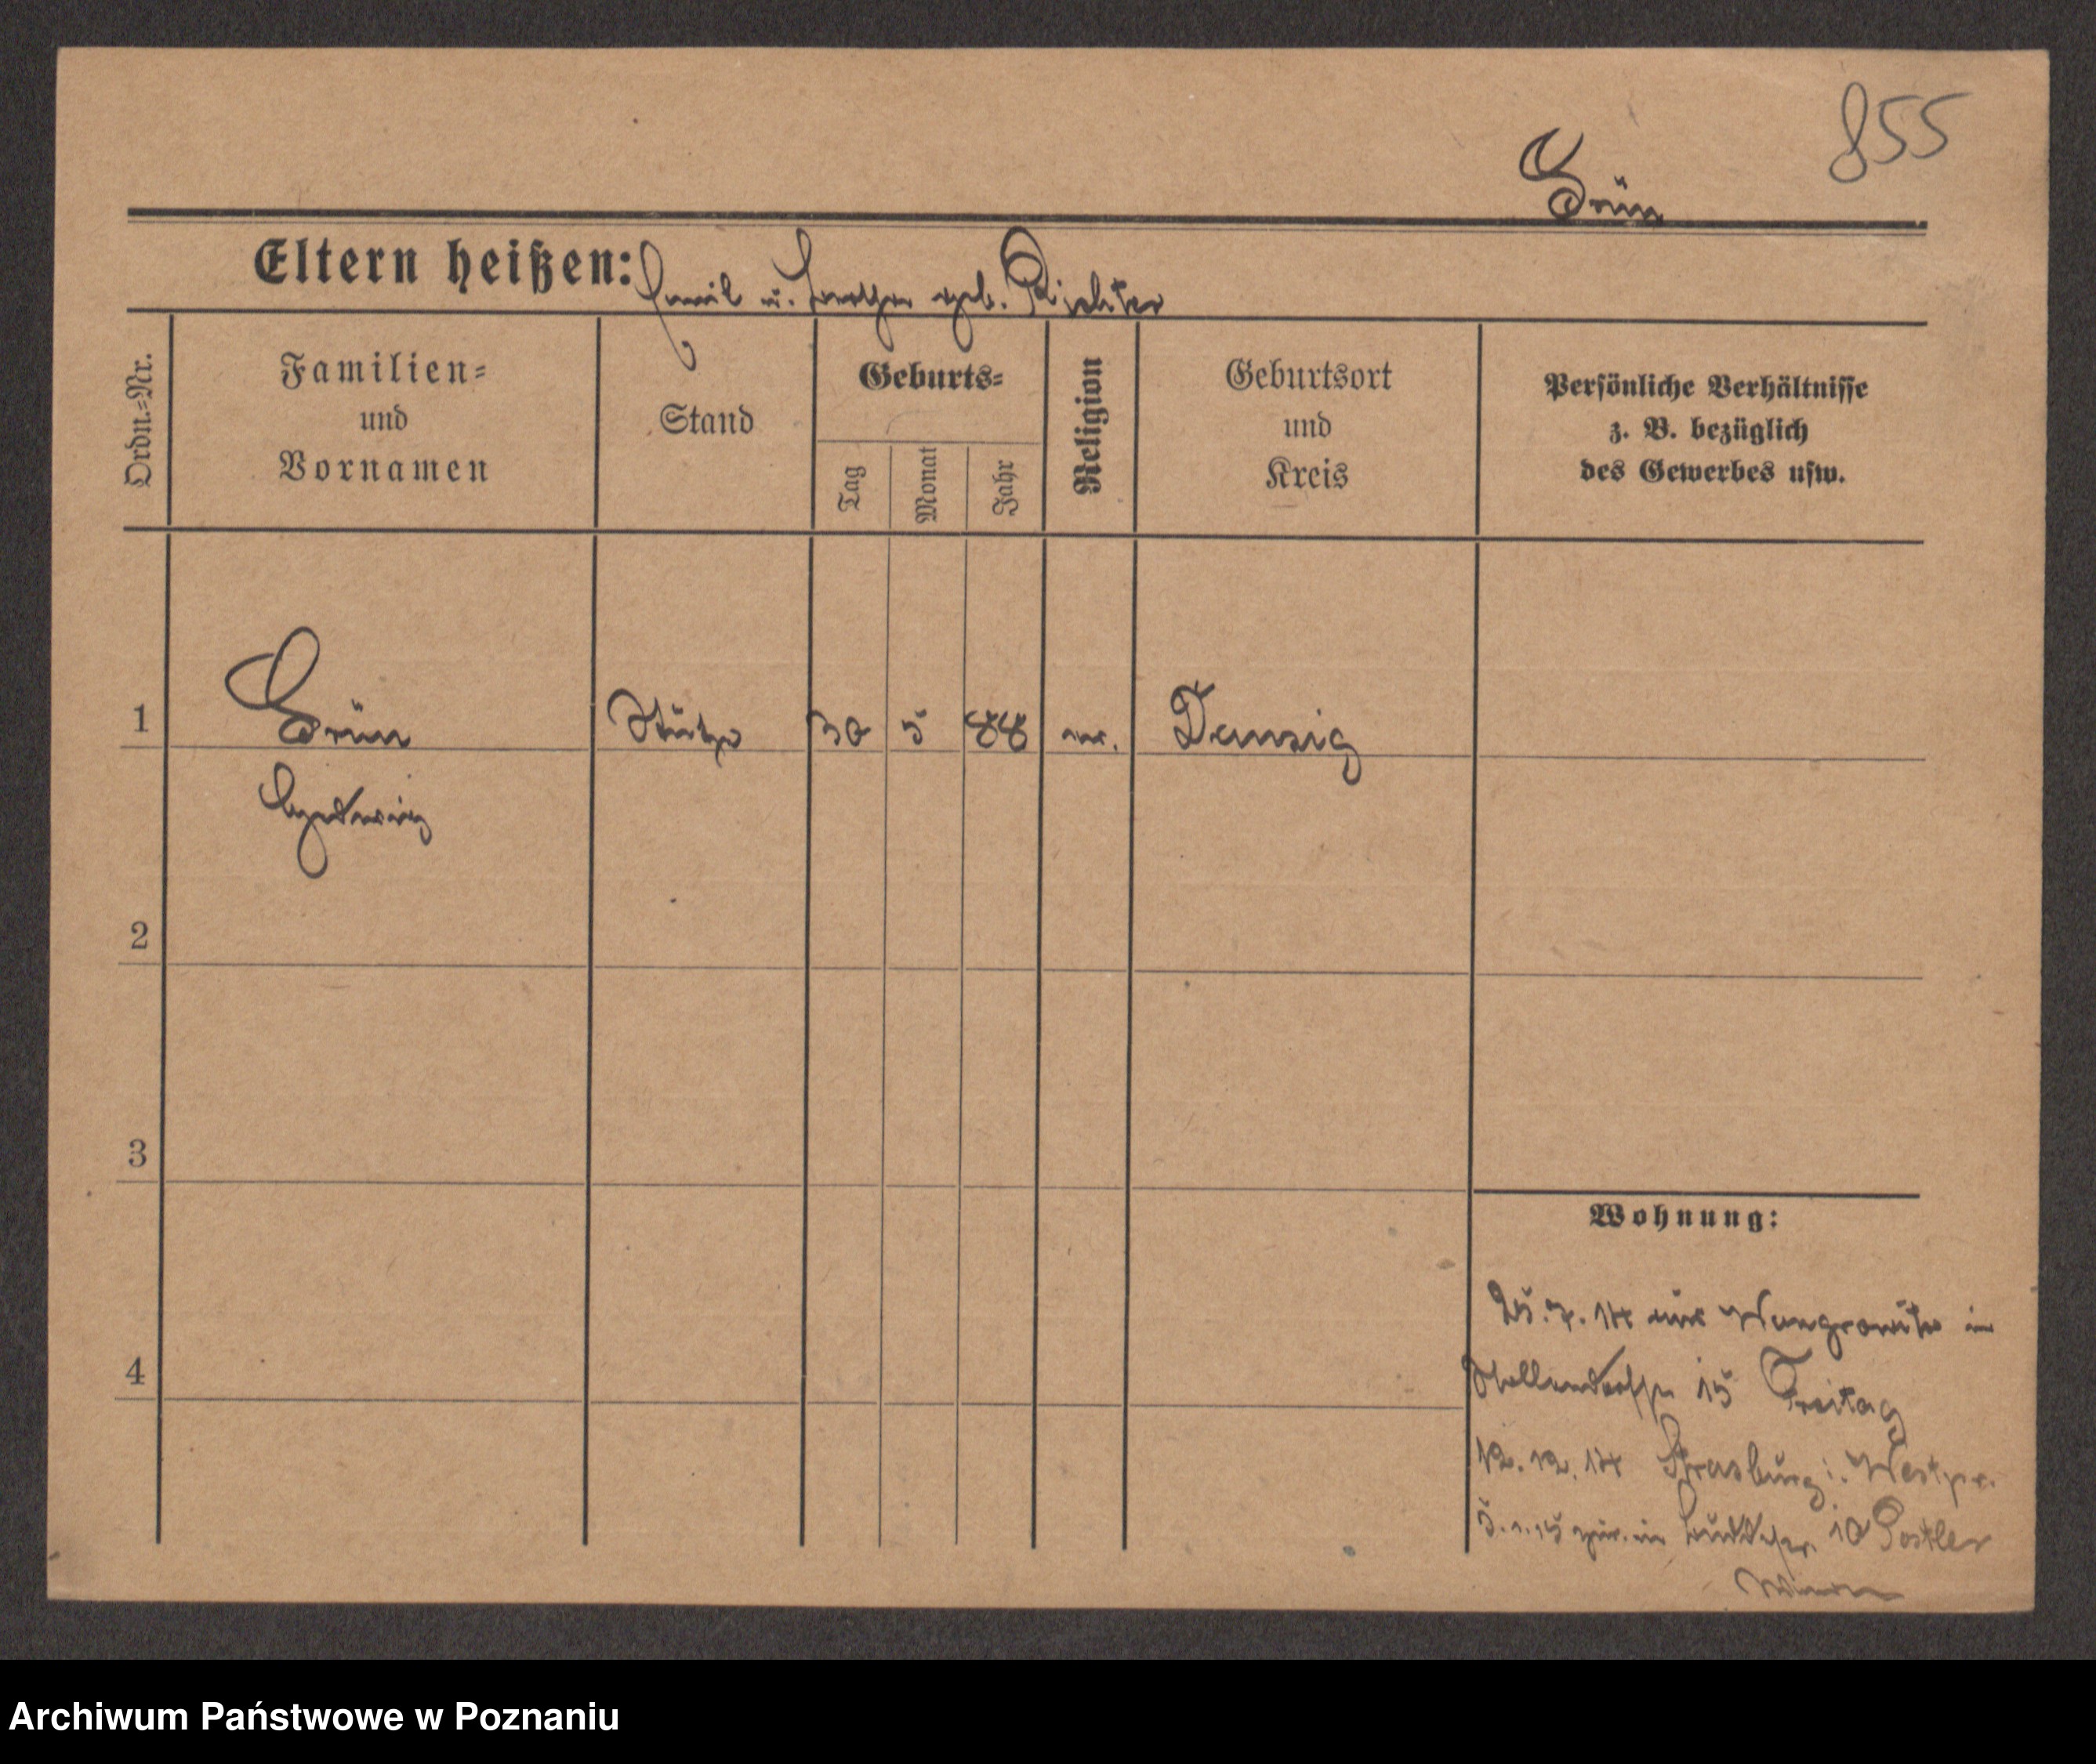 855
Grün
Eltern heißen: Emil u. Bertha geb. Richter
Ordn.-Nr.
Familien-
und
Vornamen
Stand
Geburts-
Tag
Monat
Jahr
Religion
Geburtsort
und
Kreis
Persönliche Verhältnisse
z. B. bezüglich
des Gewerbes usw.
1
Grün
Stütze
30
5
88
ev.
Danzig
Hedwig
2
3
Wohnung:
25.7.14 aus Wongrowitz in
15 Freitag
4
12.12.14 Strasburg i. Westpr.
5.1.15 zur. in 10 Postler
Archiwum Państwowe w Poznaniu